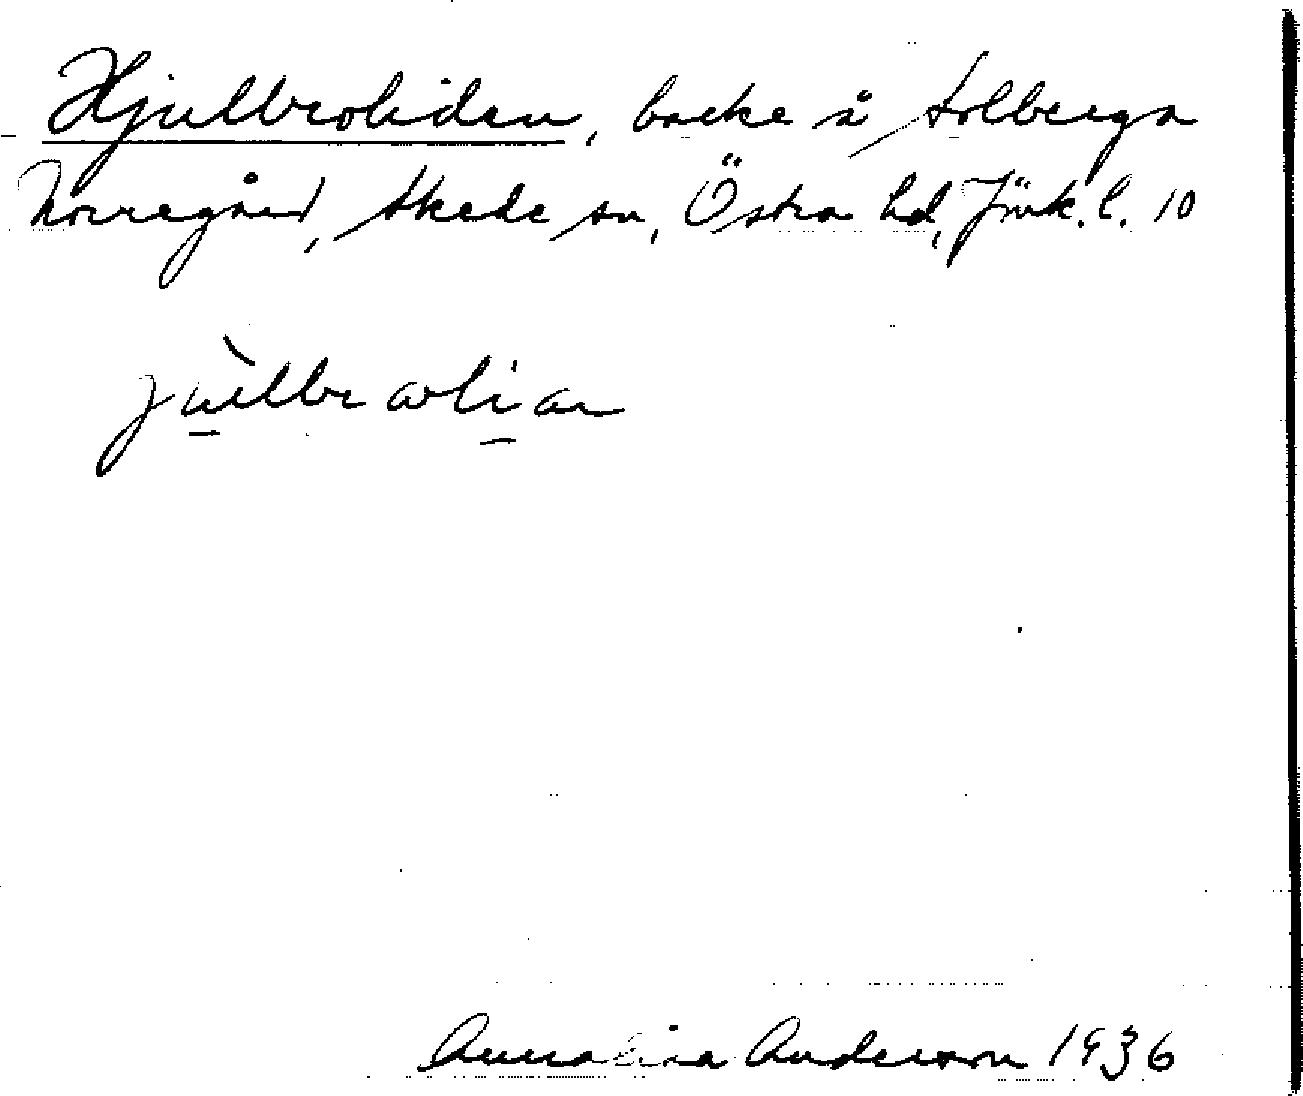 Hjulbroliden, backe å Solberga
Norregård, Skede sn, Östra hd, Jönk. l. 10
jùlbrωlian
Annalisa Anderson 1936